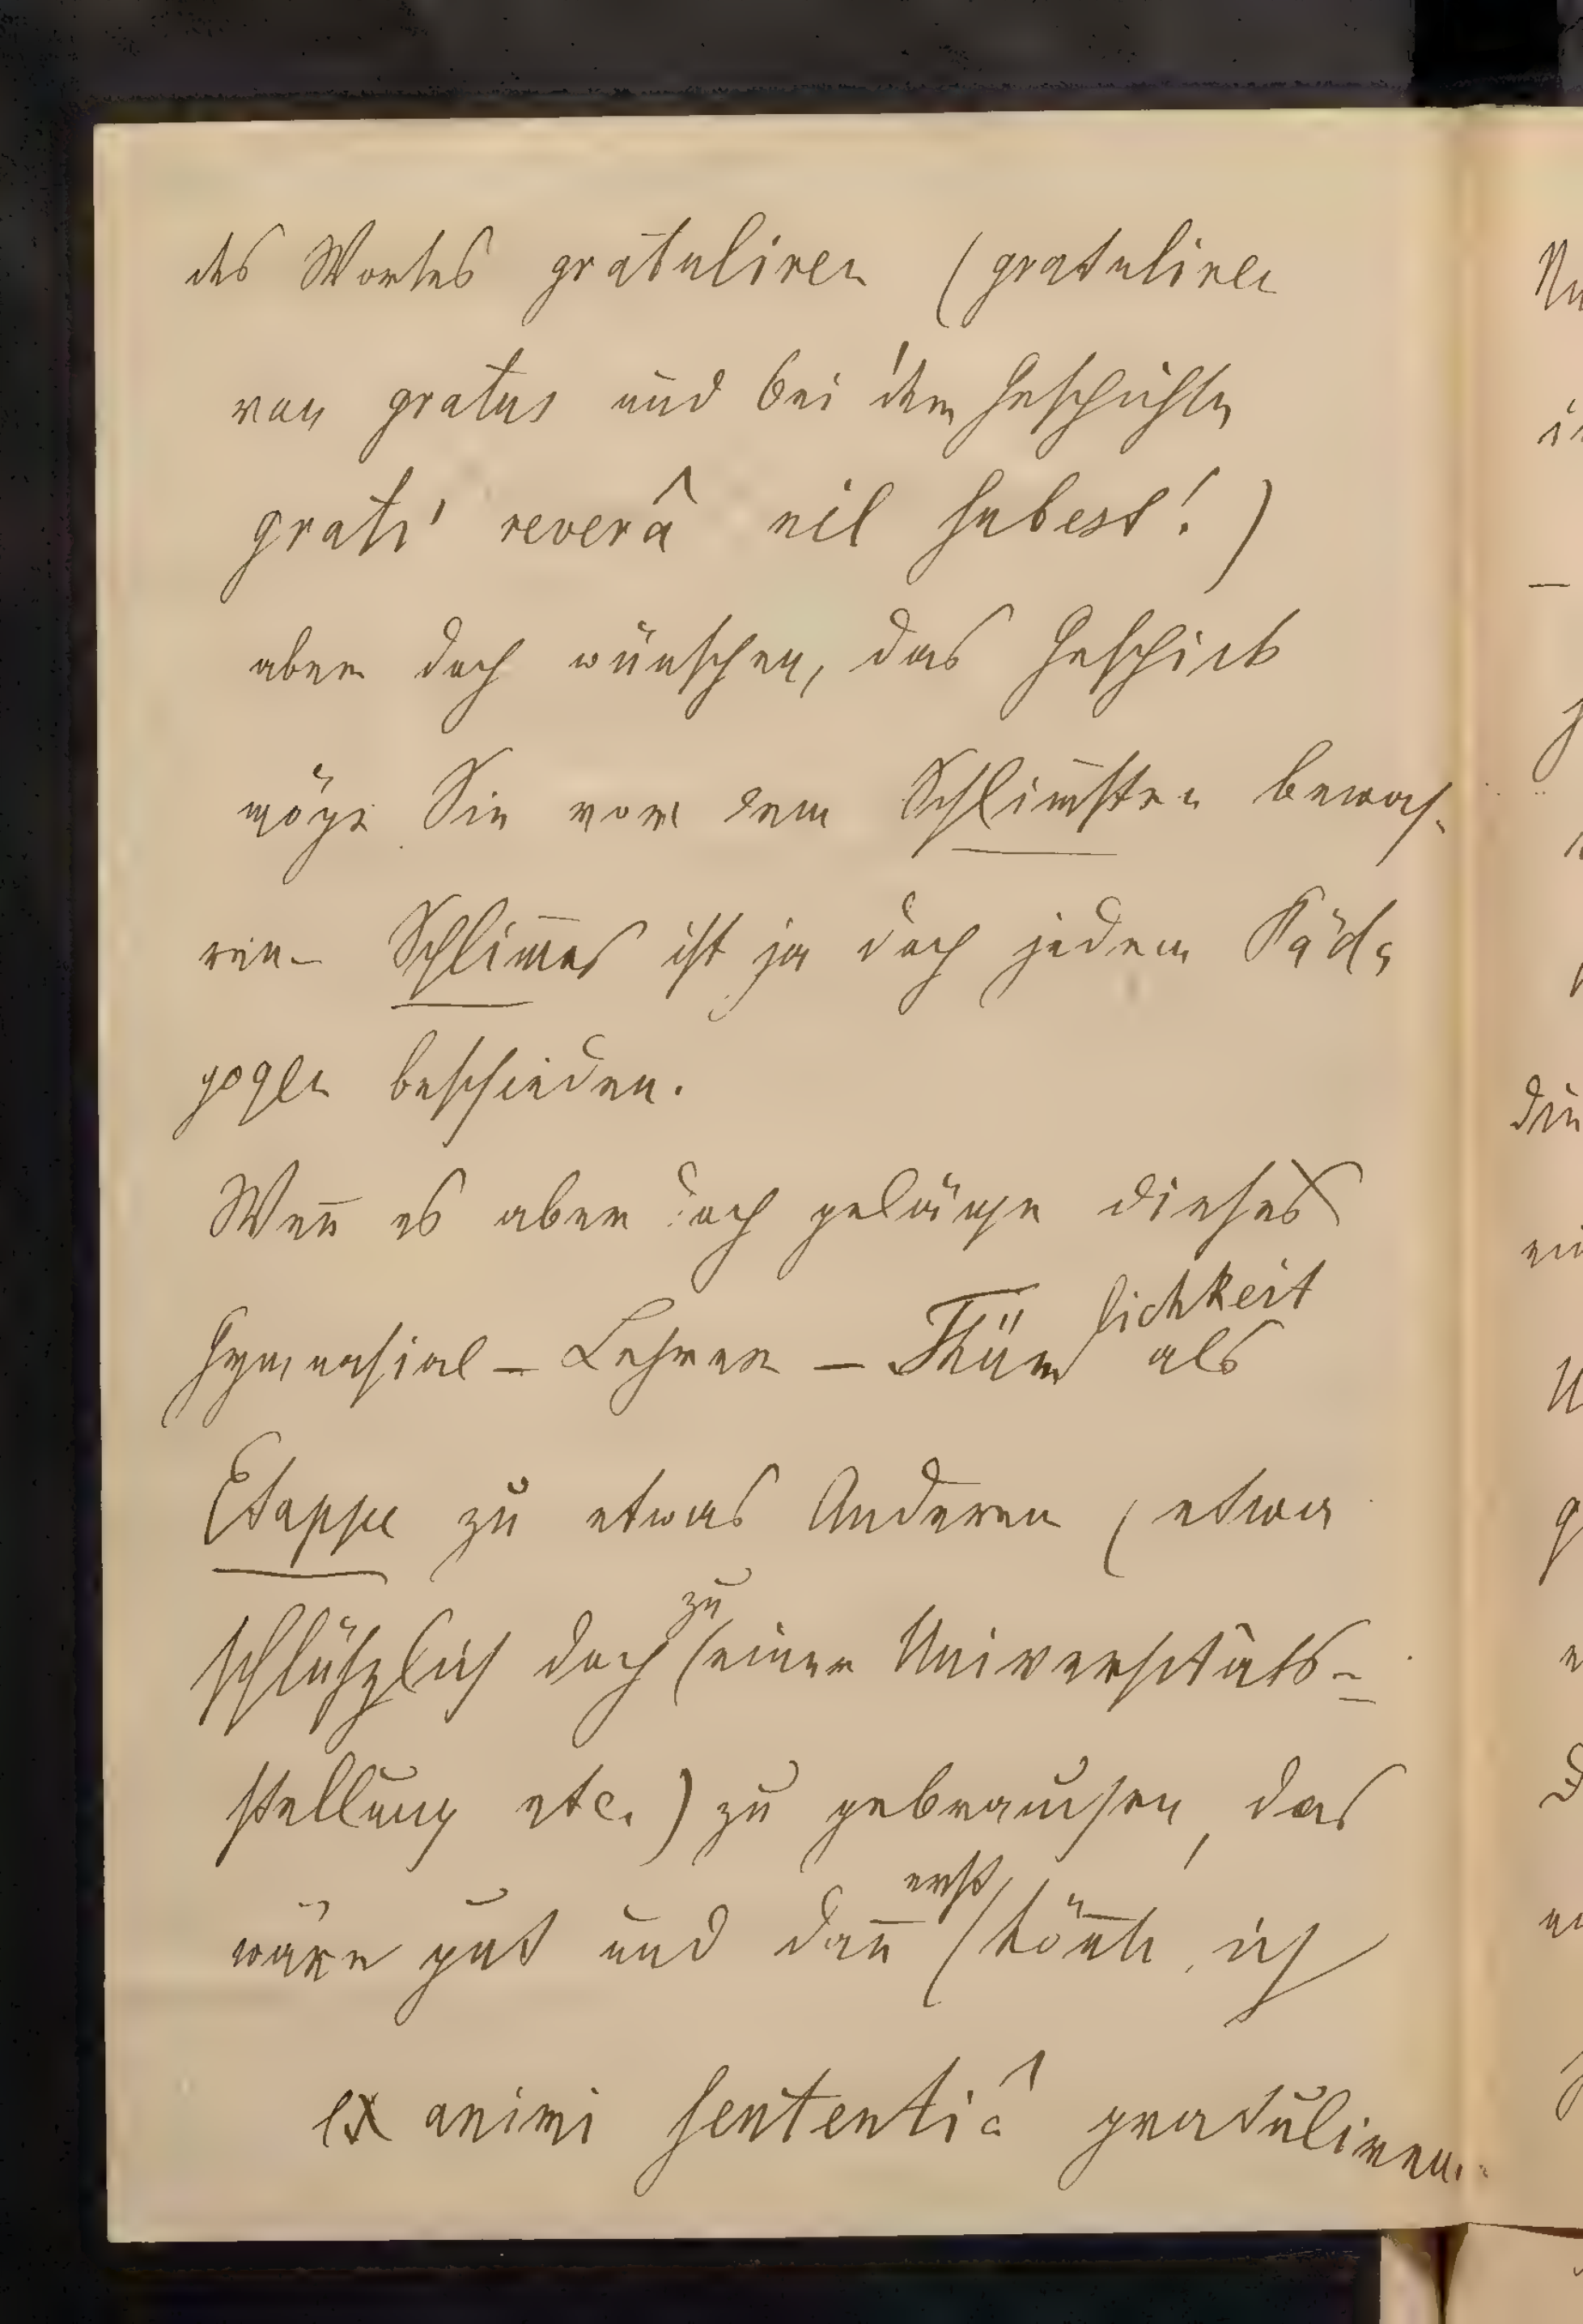 des Wortes gratuliren (gratuliren
von gratus und bei dem Geschichte
grati' reverâ nil subest!)
aber doch wünschen, das Geschick
möge Sie vor dem Schlim̅sten bewah-
ren – Schlim̅es ist ja doch jedem Päda
gogen beschieden.
Wen̅ es aber doch gelänge dieses
lichkeit
Gymnasial – Lehrer – Thüm als
Etappe zu etwas Anderem (etwa
zu
schlüßlich doch einer Universitäts-
stellung etc.) zu gebrauchen, das
erst
wäre gut und dan̅ kön̅te ich
ex animi sententiâ gratuliren.